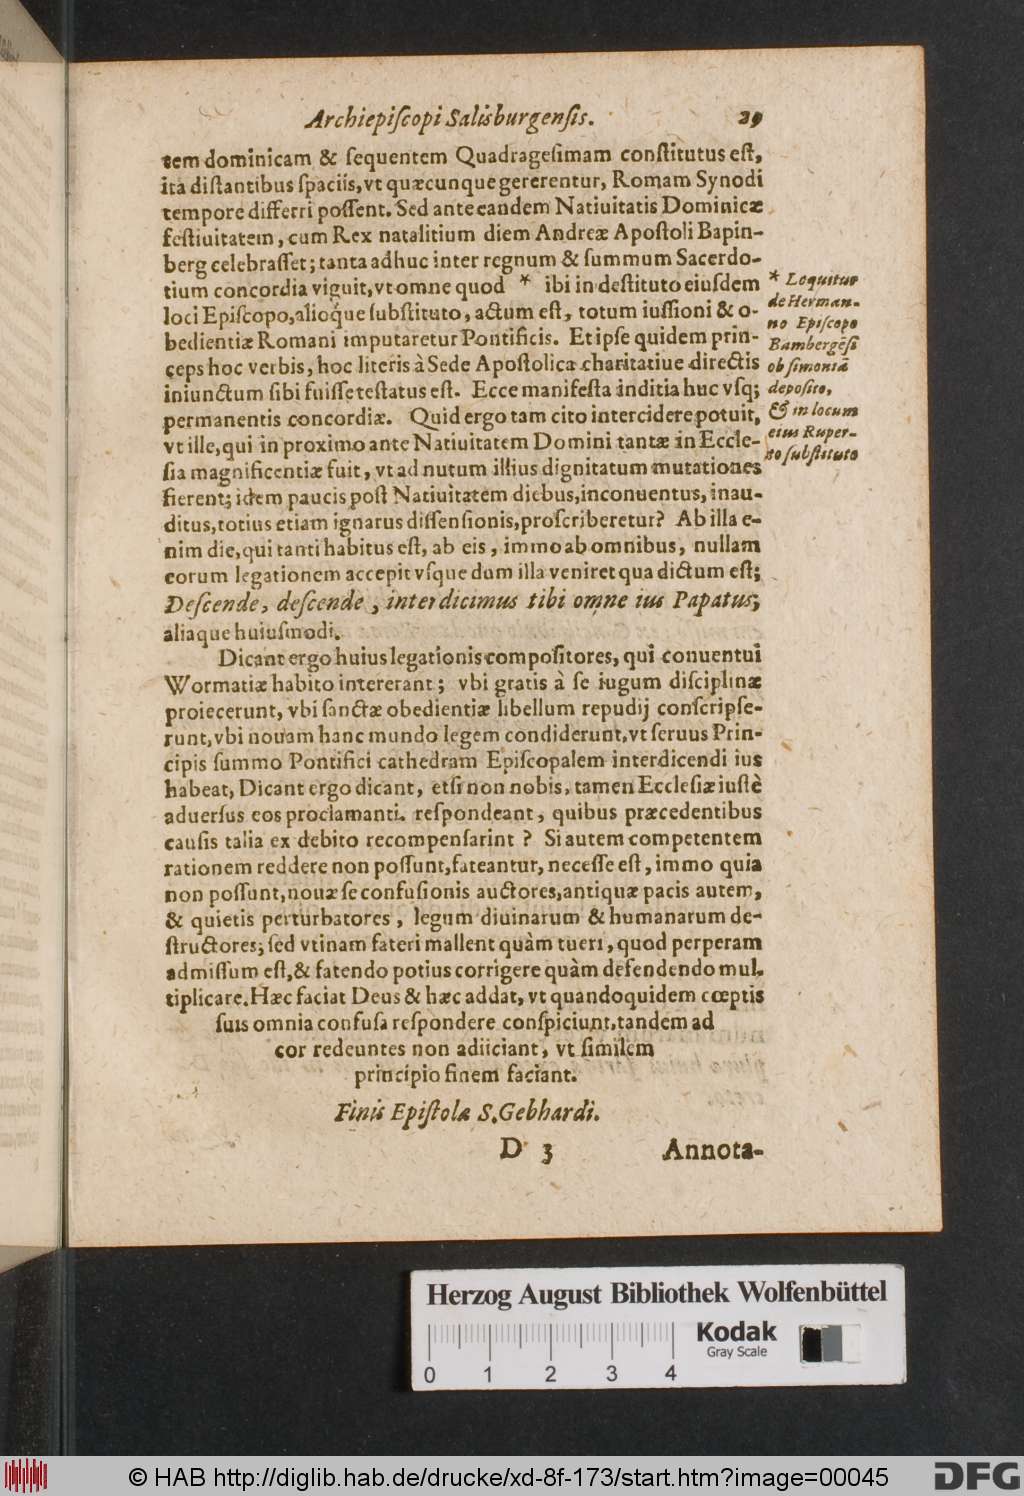 Archiepiſcopi Salisburgenſis. 29
tem dominicam & ſequentem Quadrageſimam conſtitutus eſt,
ita diſtantibus ſpaciis, vt quæcunque gererentur, Romam Synodi
tempore differri poſſent. Sed ante eandem Natiuitatis Dominicæ
feſtiuitatem, cum Rex natalitium diem Andreæ Apoſtoli Bapin-
berg celebraſſet; tanta adhuc inter regnum & ſummum Sacerdo-
tium concordia viguit, vt omne quod * ibi in deſtituto eiuſdem
loci Epiſcopo, alioq́ue ſubſtituto, actum eſt, totum iuſſioni & o-
bedientiæ Romani imputaretur Pontificis. Et ipſe quidem prin-
ceps hoc verbis, hoc literis à Sede Apoſtolica charitatiue directis
iniunctum ſibi fuiſſe teſtatus eſt. Ecce manifeſta inditia huc vſq;
permanentis concordiæ. Quid ergo tam cito intercidere potuit,
vt ille, qui in proximo ante Natiuitatem Domini tantæ in Eccle-
ſia magnificentiæ fuit, vt ad nutum illius dignitatum mutationes
fierent; idem paucis poſt Natiuitatem diebus, inconuentus, inau-
ditus, totius etiam ignarus diſſenſionis, proſcriberetur? Ab illa e-
nim die, qui tanti habitus eſt, ab eis, immo ab omnibus, nullam
eorum legationem accepit vſque dum illa veniret qua dictum eſt;
Deſcende, deſcende, interdicimus tibi omne ius Papatus;
aliaque huiuſmodi.
* Loquitur
de Herman-
no Epiſcopo
Bambergēſi
ob ſimoniā
depoſito,
& in locum
eius Ruper-
to ſubſtituto
Dicant ergo huius legationis compoſitores, qui conuentui
Wormatiæ habito intererant; vbi gratis à ſe iugum diſciplinæ
proiecerunt, vbi ſanctæ obedientiæ libellum repudij conſcripſe-
runt, vbi nouam hanc mundo legem condiderunt, vt ſeruus Prin-
cipis ſummo Pontifici cathedram Epiſcopalem interdicendi ius
habeat, Dicant ergo dicant, etſi non nobis, tamen Eccleſiæ iuſtè
aduerſus eos proclamanti. reſpondeant, quibus præcedentibus
cauſis talia ex debito recompenſarint? Si autem competentem
rationem reddere non poſſunt, fateantur, neceſſe eſt, immo quia
non poſſunt, nouæ ſe confuſionis auctores, antiquæ pacis autem,
& quietis perturbatores, legum diuinarum & humanarum de-
ſtructores; ſed vtinam fateri mallent quàm tueri, quod perperam
admiſſum eſt, & fatendo potius corrigere quàm defendendo mul-
tiplicare. Hæc faciat Deus & hæc addat, vt quandoquidem cœptis
ſuis omnia confuſa reſpondere conſpiciunt, tandem ad
cor redeuntes non adiiciant, vt ſimilem
principio finem faciant.
Finis Epiſtolæ S. Gebhardi.
D 3 Annota-
Herzog August Bibliothek Wolfenbüttel
Kodak
Gray Scale
0 1 2 3 4
© HAB http://diglib.hab.de/drucke/xd-8f-173/start.htm?image=00045
DFG